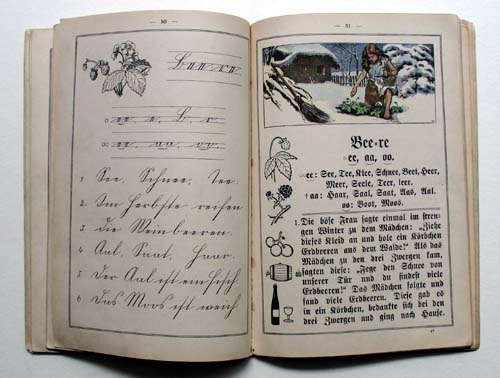 — 50 —
Bee-re
ee. e. B. r
ee. aa. oo.
1. See, Schnee, Tee.
2. Im Herbste reifen
3. die Weinbeeren.
4. Aal, Saat, Haar.
5. Der Aal ist ein Fisch.
6. Das Moos ist weich.
— 51 —
Bee-re
ee, aa, oo.
ee: See, Tee, Klee, Schnee, Beet, Heer,
Meer, Seele, Teer, leer.
aa: Haar, Saal, Saat, Aas, Aal.
oo: Boot, Moos.
1. Die böse Frau sagte einmal im stren-
gen Winter zu dem Mädchen: „Ziehe
dieses Kleid an und hole ein Körbchen
Erdbeeren aus dem Walde!“ Als das
Mädchen zu den drei Zwergen kam,
sagten diese: „Fege den Schnee von
unserer Tür und du findest viele
Erdbeeren!“ Das Mädchen folgte und
fand viele Erdbeeren. Diese gab es
in ein Körbchen, bedankte sich bei den
drei Zwergen und ging nach Hause.